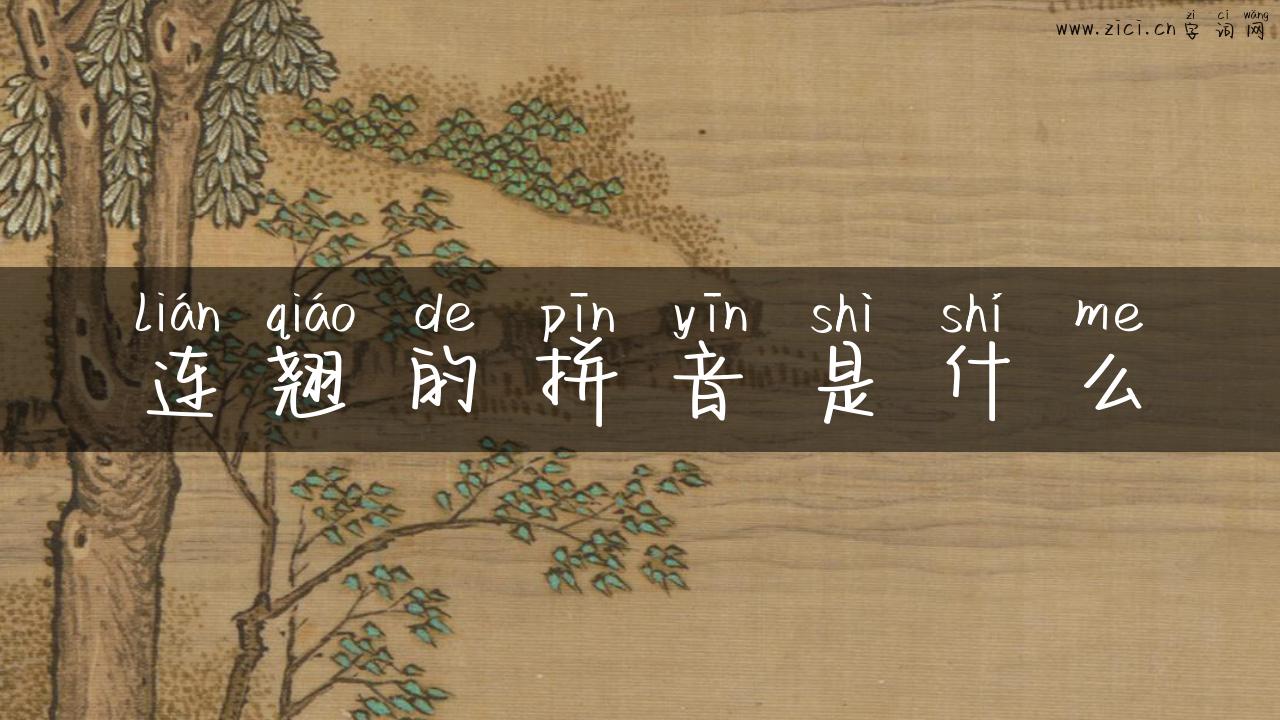 zì cí wǎng
www.zici.cn 字词网
lián qiáo de pīn yīn shì shí me
连翘的拼音是什么